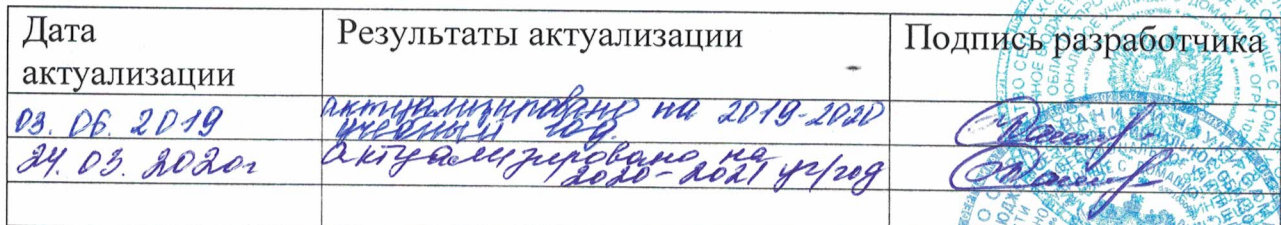 Дата актуализации
Результаты актуализации
Подпись разработчика
03.06.2019
актуализировано на 2019-2020
учебный год.
24.03.2020г
актуализировано на
2020-2021 уч/год